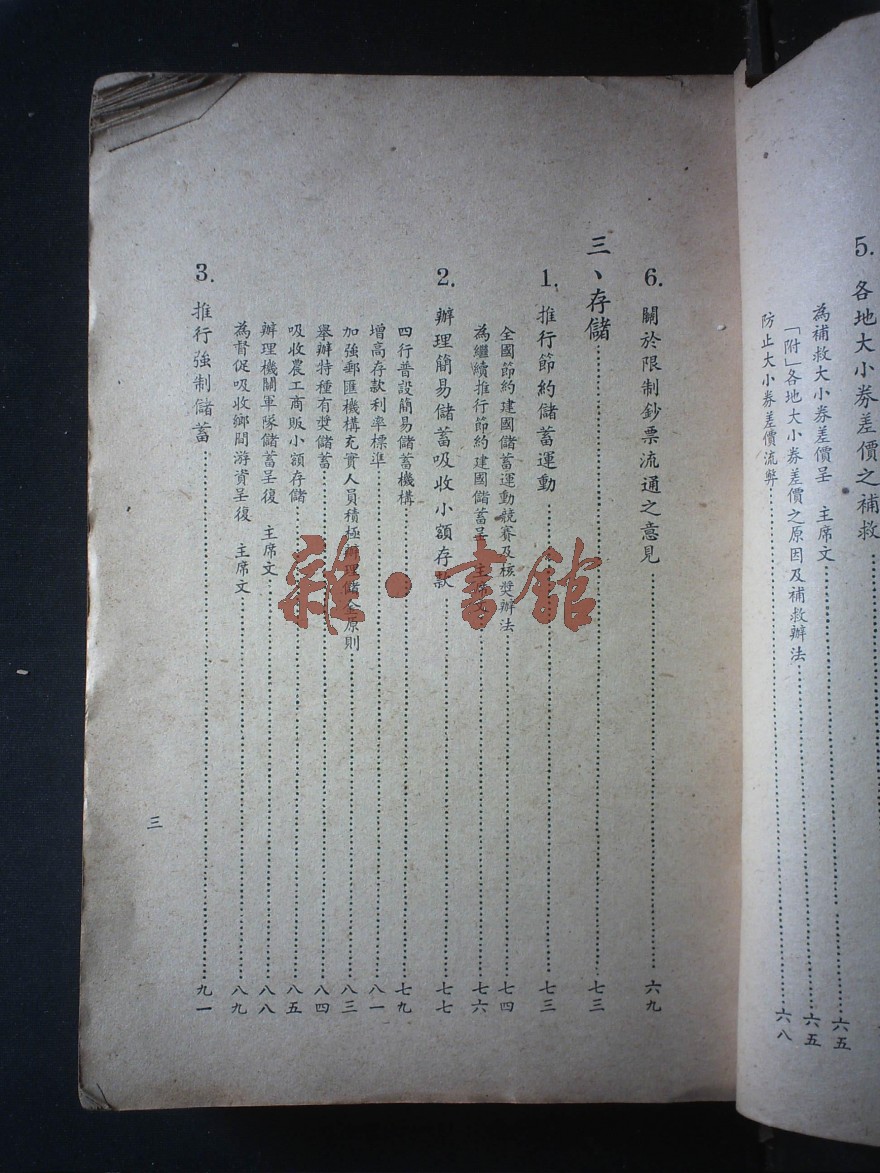 5. 各地大小券差價之補救
為補救大小券差價呈　主席文……六五
「附」各地大小券差價之原因及補救辦法……六五
防止大小券差價流弊……六八
6. 關於限制鈔票流通之意見……六九
三、存儲……七三
1. 推行節約儲蓄運動……七三
全國節約建國儲蓄運動競賽及核獎辦法……七四
為繼續推行節約建國儲蓄呈　主席文……七六
2. 辦理簡易儲蓄吸收小額存款……七七
四行普設簡易儲蓄機構……七九
增高存款利率標準……八一
加強郵匯機構充實人員積極辦理儲金原則……八三
舉辦特種有獎儲蓄……八四
吸收農工商販小額存儲……八五
辦理機關軍隊儲蓄呈復　主席文……八八
為督促吸收鄉間游資呈復　主席文……八九
3. 推行強制儲蓄……九一
三
雜·書館